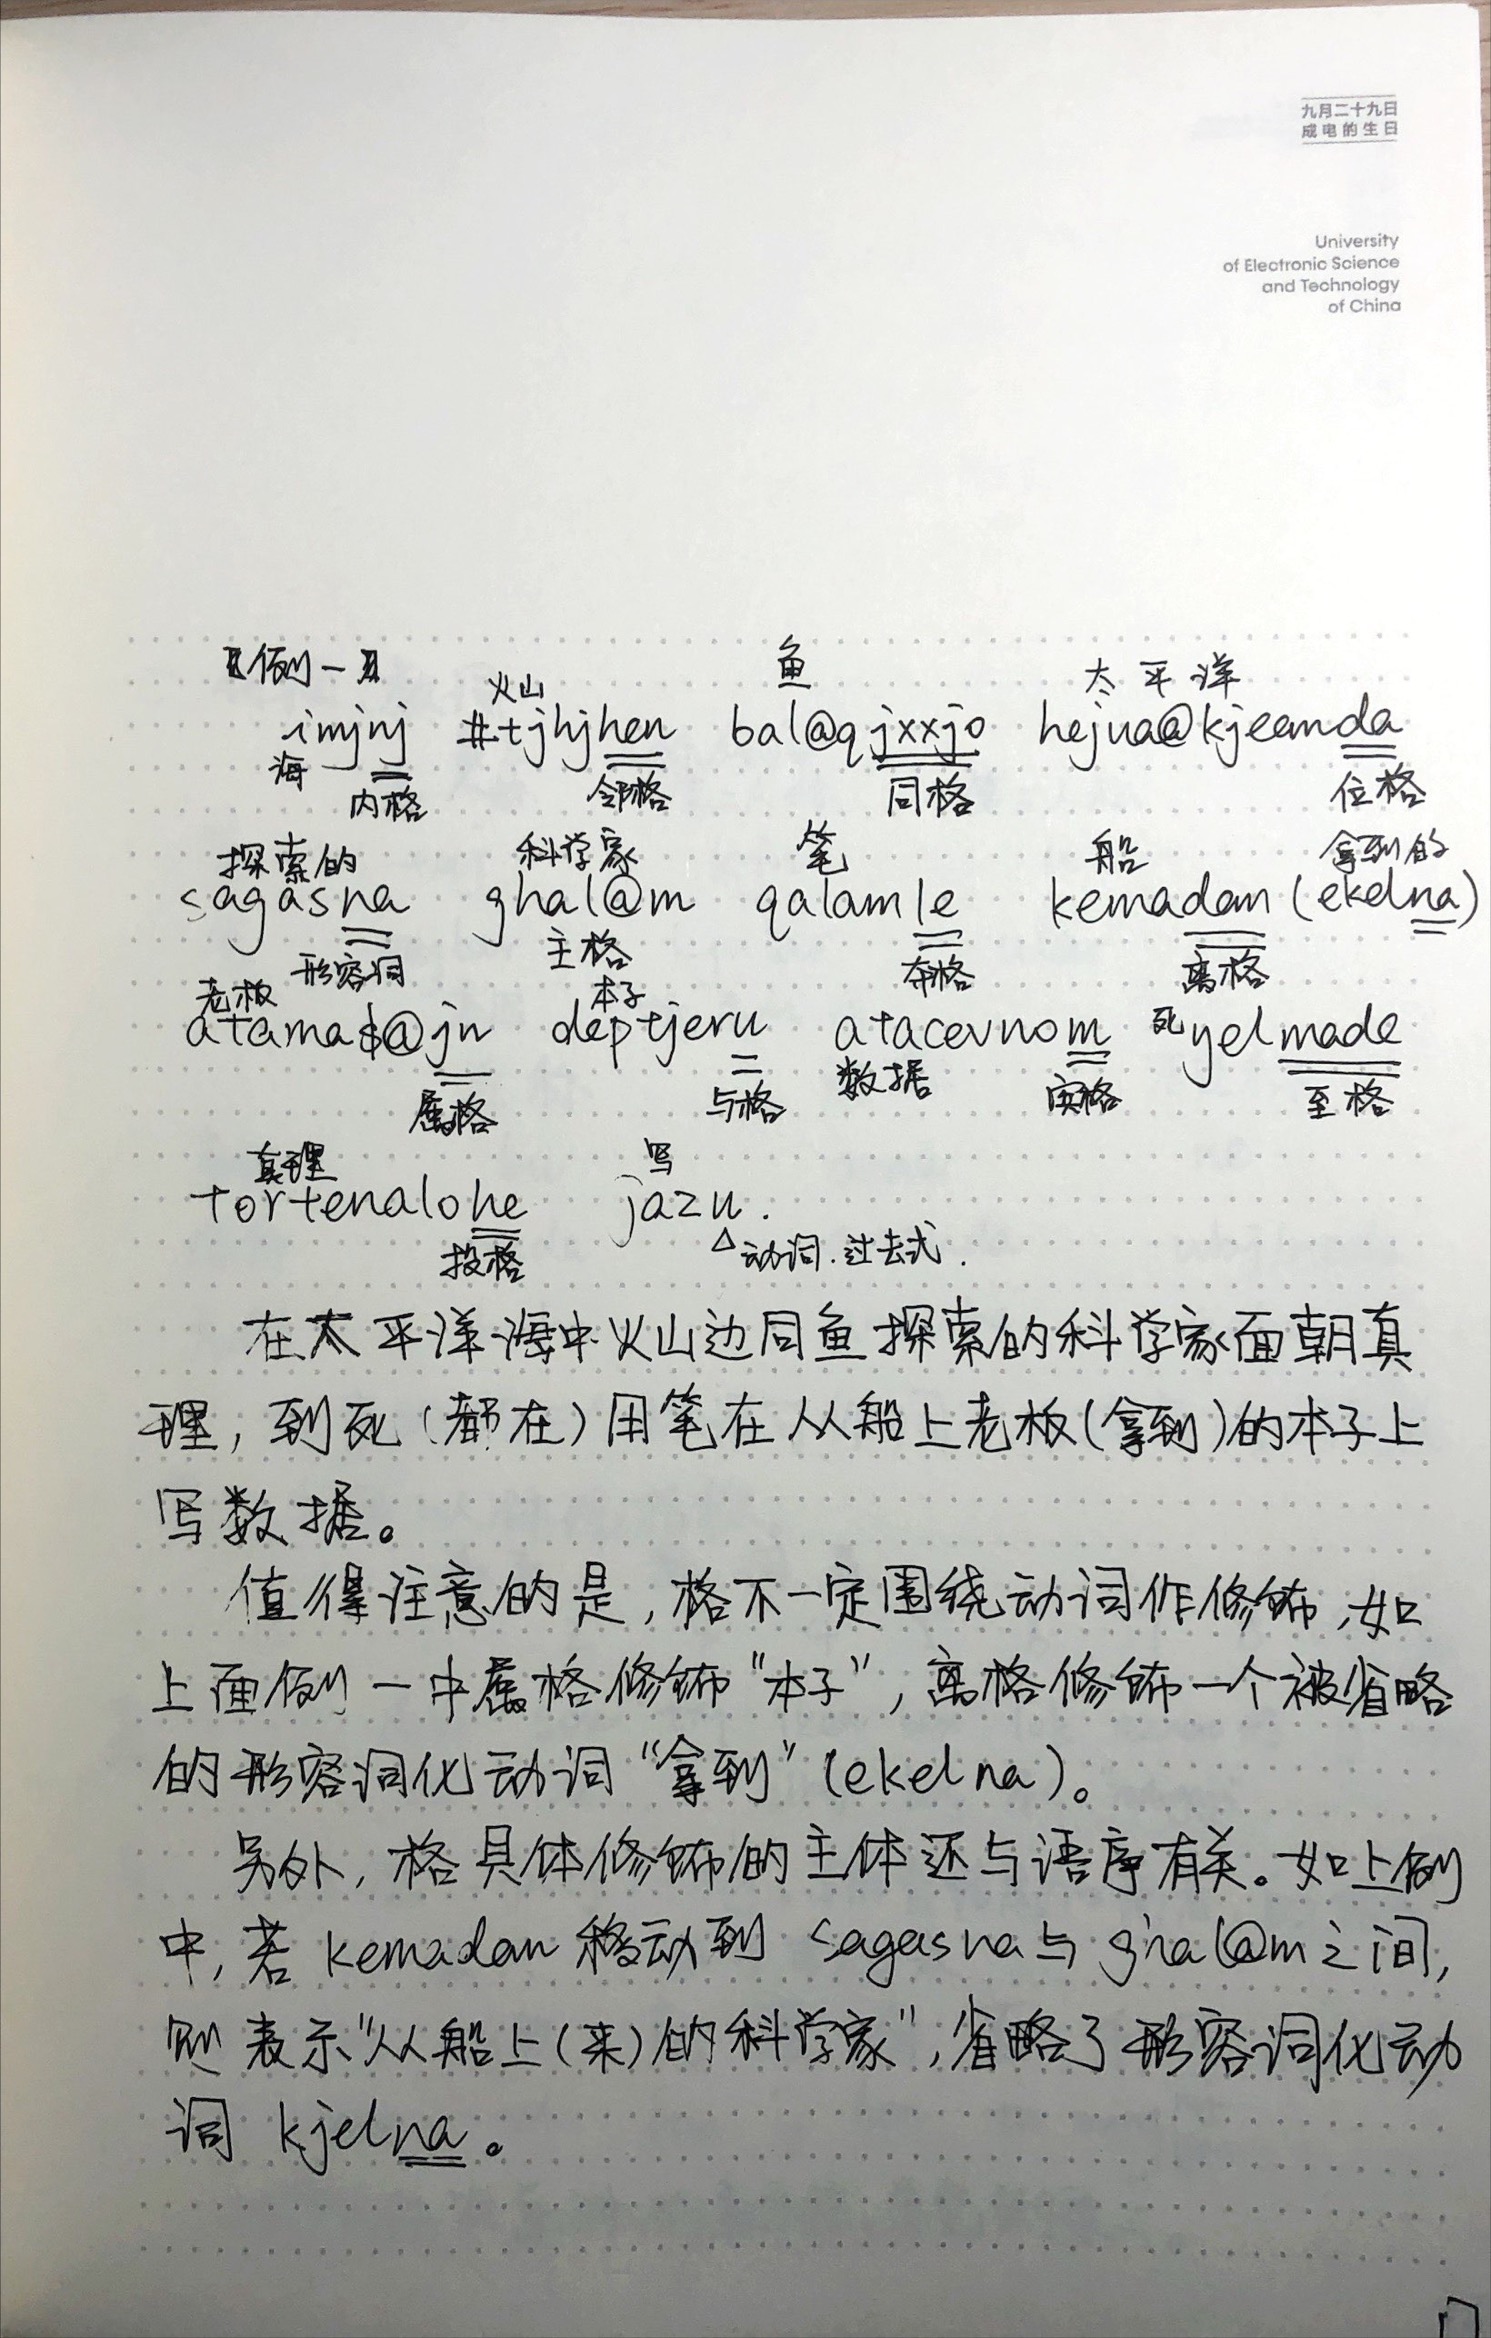 九月二十九日
成电的生日
University
of Electronic Science
and Technology
of China
【例一】
火山 鱼 太平洋
imjnj #tjhjhen bal@qjxxjo hejua@kjeanda
海 内格 邻格 同格 位格
探索的 科学家 笔 船 拿到的
sagasna ghal@m qalamle kemadan (ekelna)
形容词 主格 夲格 离格
老板 本子
atama$@jn deptjeru atacevnom 死 yelmade
属格 与格 数据 宾格 至格
真理 写
tortenalohe jazu.
投格 △动词.过去式.
在太平洋海中火山边同鱼探索的科学家面朝真
理,到死(都在)用笔在从船上老板(拿到)的本子上
写数据。
值得注意的是,格不一定围绕动词作修饰,如
上面例一中属格修饰"本子",离格修饰一个被省略
的形容词化动词"拿到"(ekelna)。
另外,格具体修饰的主体还与语序有关。如上例
中,若 kemadan 移动到 sagasna与 ghal@m之间,
则表示"从船上(来)的科学家",省略了形容词化动
词 kjelna。